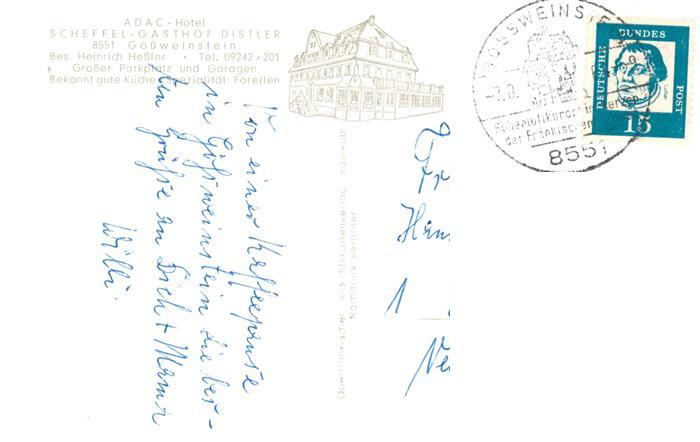 ADAC - Hotel
SCHEFFEL-GASTHOF DISTLER
8551 Gößweinstein
Bes. Heinrich Heßler • Tel. 09242/201
Großer Parkplatz und Garagen
Bekannt gute Küche Spezialität: Forellen
Von einer Kaffeepause
in Gößweinstein die be-
sten Grüße an Dich + Mama
Willi.
Nachdruck verboten
GÖSSWEINSTEIN
Höhenluftkurort
der Fränkischen
8551
DEUTSCHE BUNDES POST
15
1